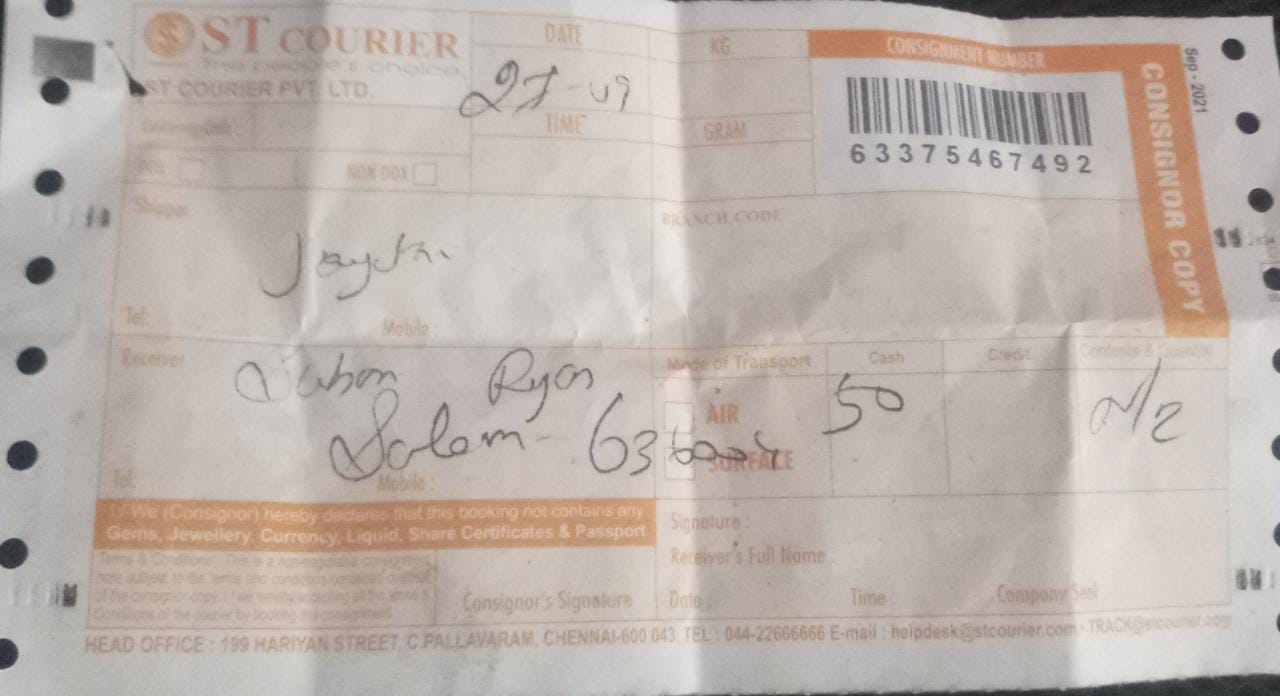 ST COURIER
The people's choice
ST COURIER PVT. LTD.
DATE
27-09
TIME
KG
GRAM
CONSIGNMENT NUMBER
63375467492
CONSIGNOR COPY
Sep - 2021
NON DOX
Shipper
BRANCH CODE
Tel:
Mobile :
Receiver
Ryan
Salem - 636
Tel:
Mobile :
Mode of Transport
AIR
SURFACE
Cash
50
Credit
Contents & Quantity
I / We (Consignor) hereby declares that this booking not contains any
Gems, Jewellery, Currency, Liquid, Share Certificates & Passport
Terms & Conditions : This is a non-negotiable consignment
note subject to the terms and conditions contained
of the consignor copy. I / we hereby accepting all the terms &
Conditions of the courier by booking this consignment.
Consignor's Signature
Signature :
Receiver's Full Name :
Date :
Time :
Company Seal
HEAD OFFICE : 199 HARIYAN STREET, C.PALLAVARAM, CHENNAI-600 043. TEL : 044-22666666 E-mail : helpdesk@stcourier.com - TRACK@stcourier.com